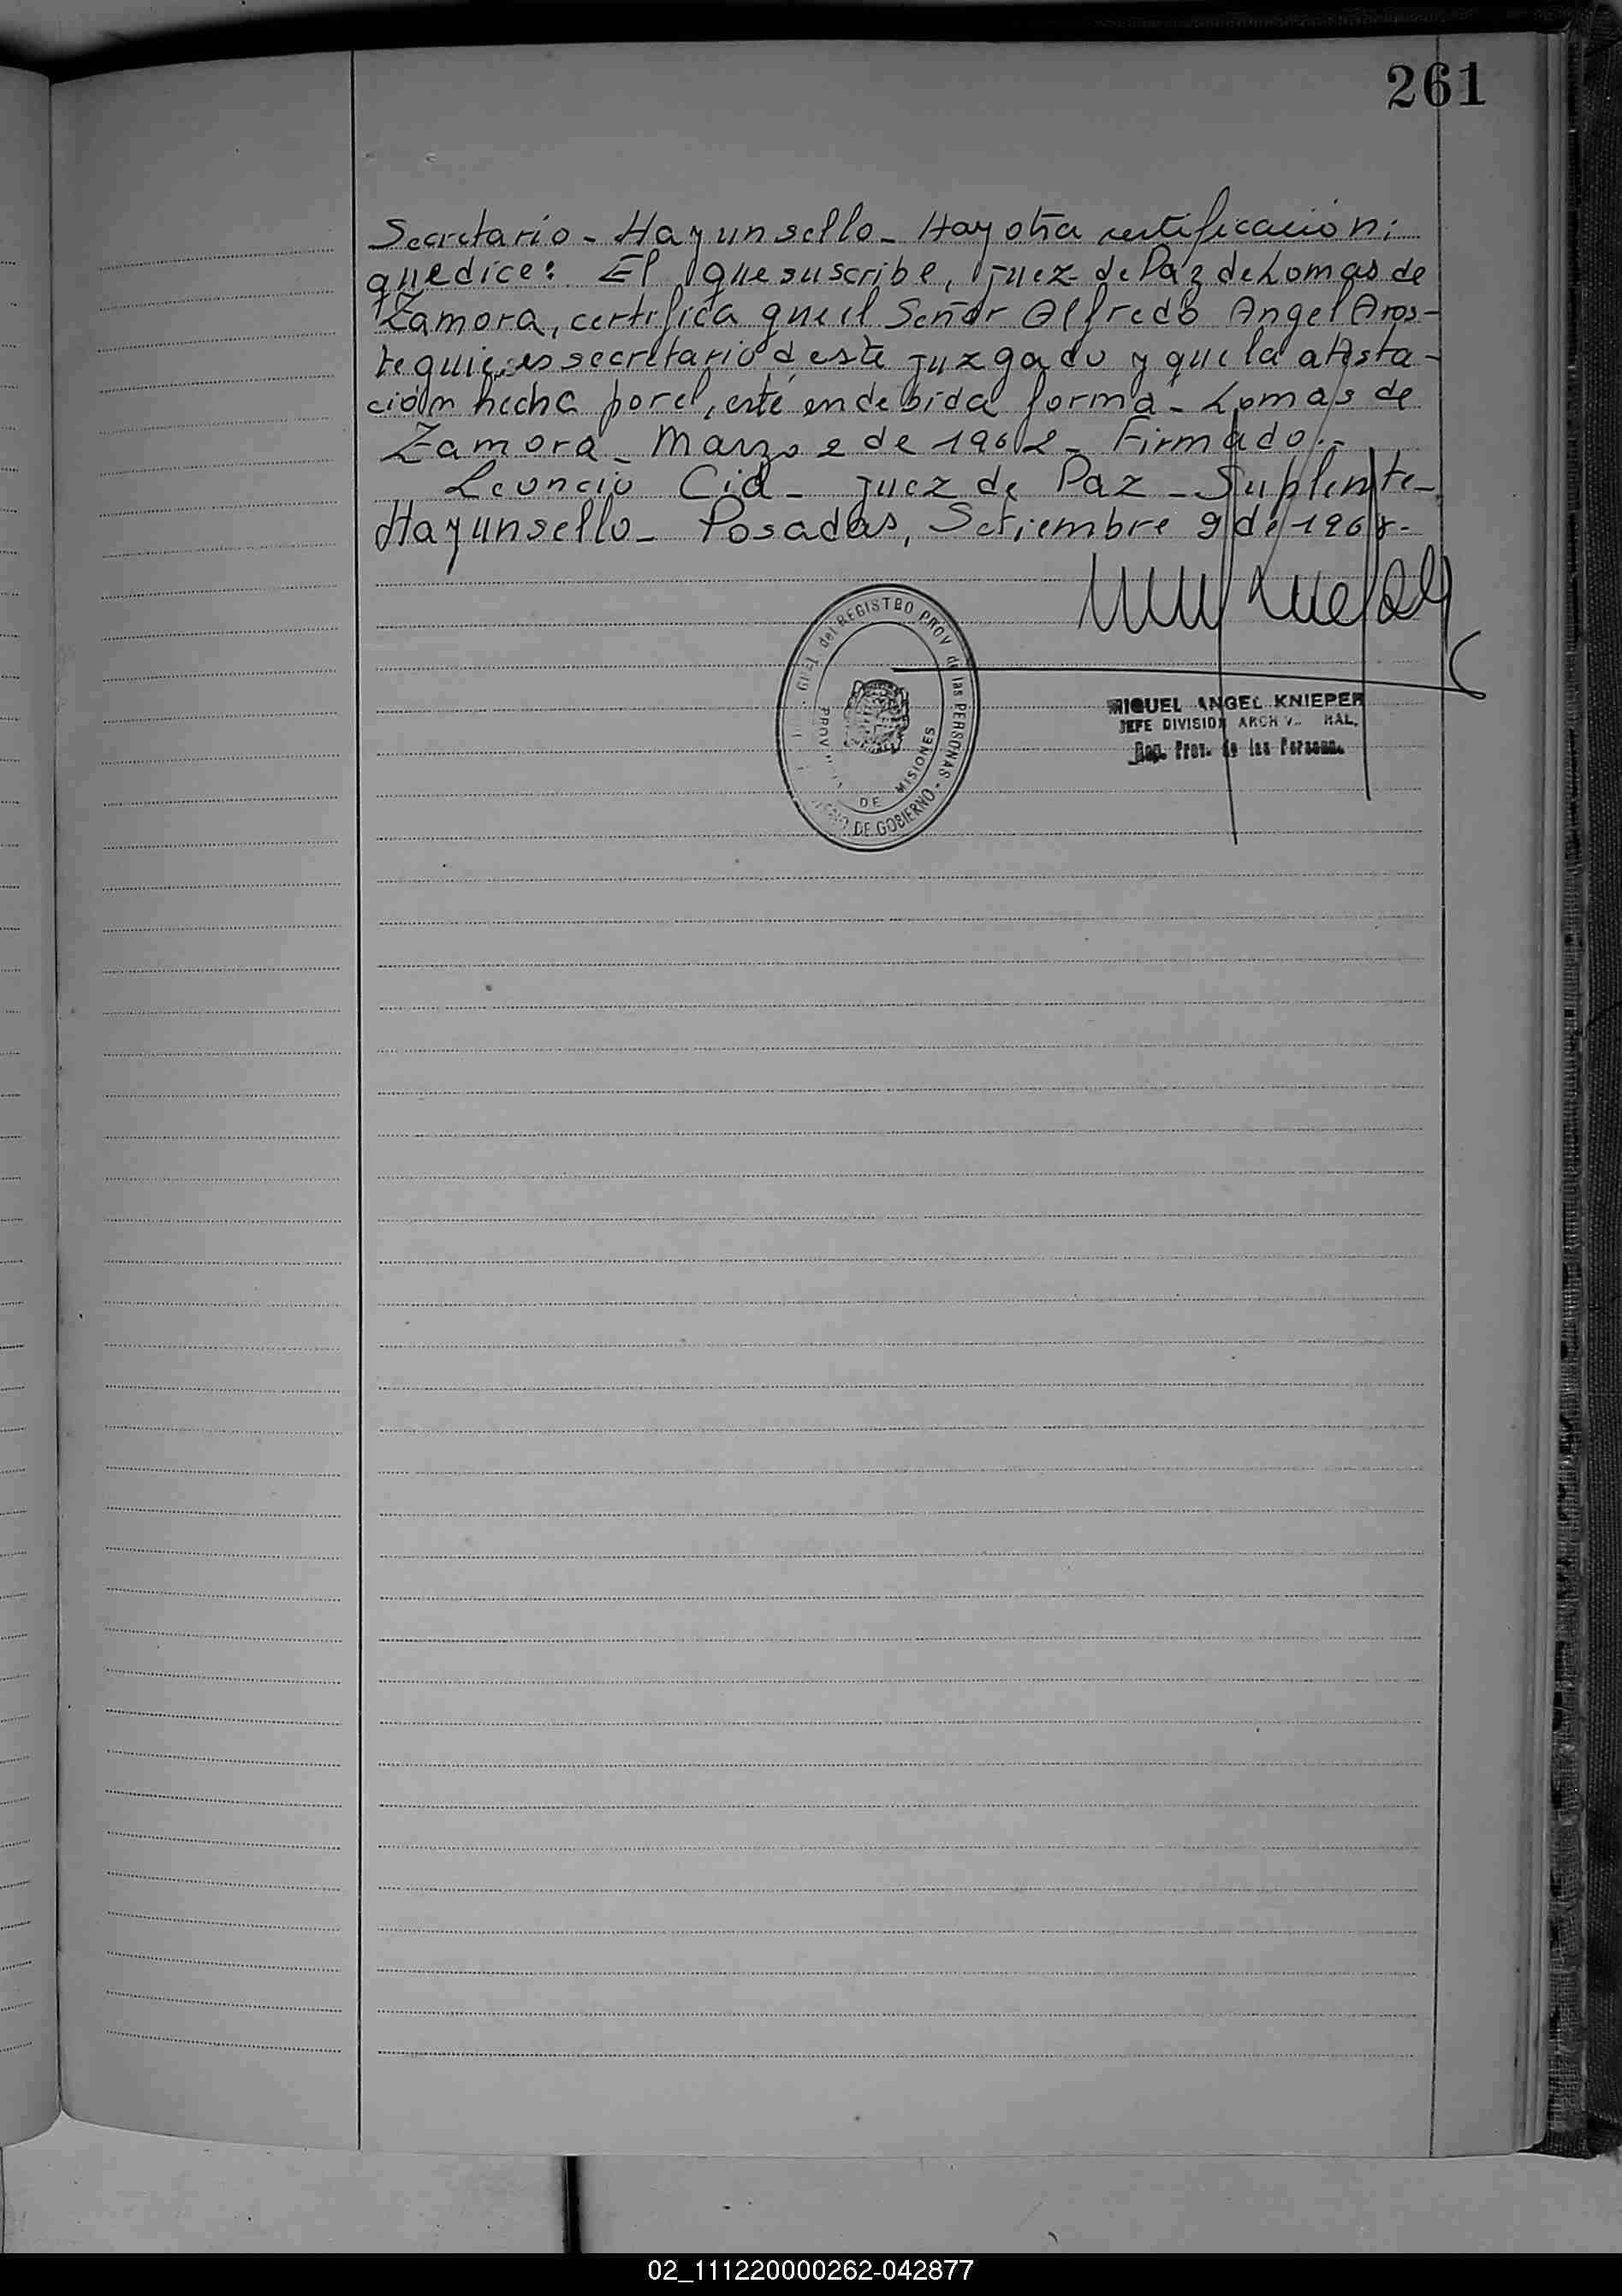 261
Secretario - Hay un sello - Hay otra certificación:
que dice: El que suscribe, juez de Paz de Lomas de
Zamora, certifica que el Señor Alfredo Angel Aros-
tegui es secretario d este juzgado y que la atesta-
ción hecha por el, esté en debida forma - Lomas de
Zamora - Marzo 2 de 1962 - Firmado.-
Leoncio Cid - juez de Paz - Suplente -
Hay un sello - Posadas, Setiembre 9 de 196
GRAL del REGISTRO PROV de las PERSONAS -
DE GOBIERNO
PROV DE MISIONES
MIGUEL ANGEL KNIEPER
JEFE DIVISION ARCH RAL.
Reg. Prov. de las Personas
02_111220000262-042877